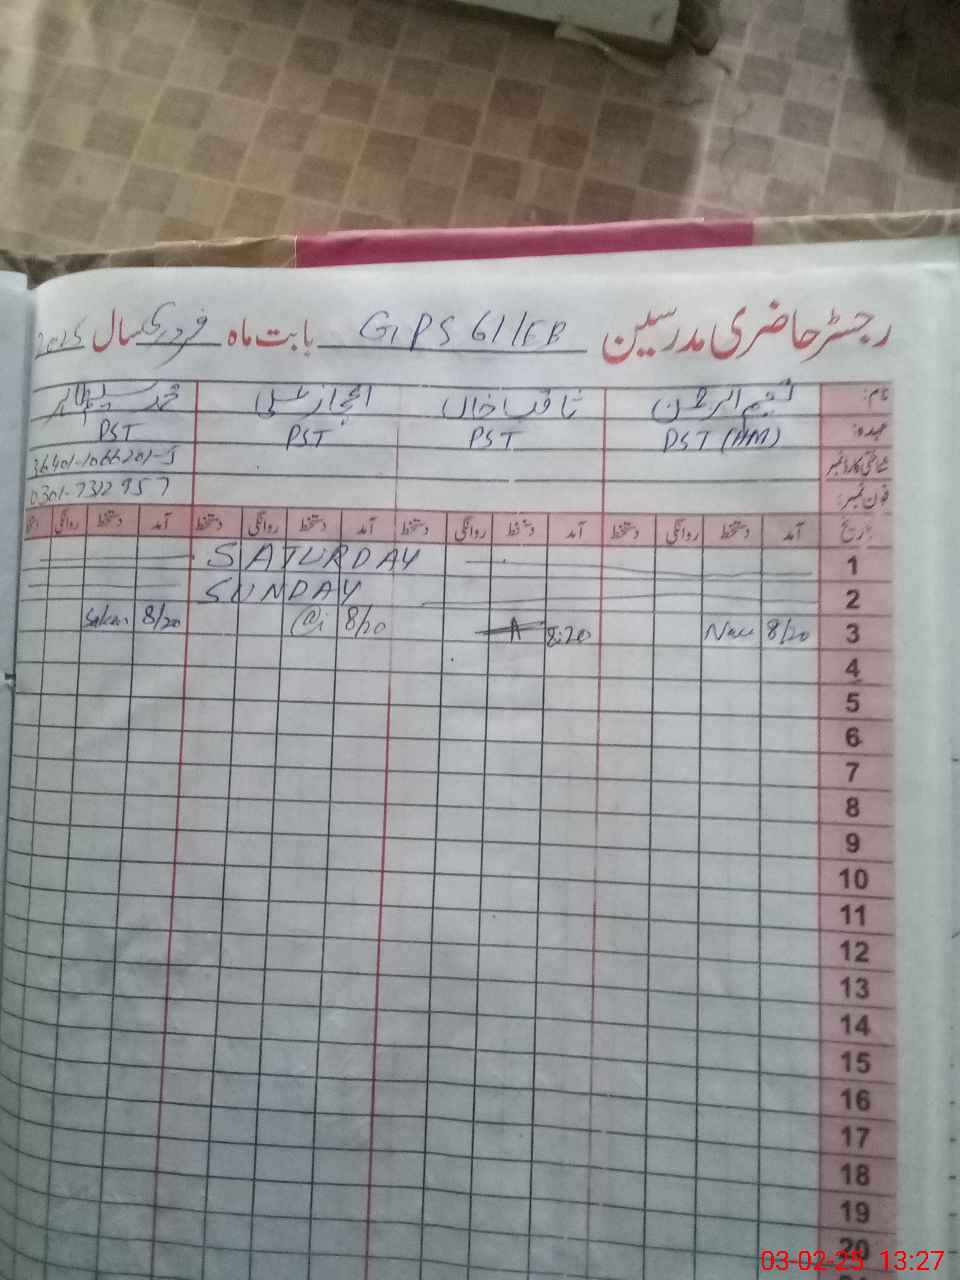 رجسٹر حاضری مدرسین GPS 61/EB بابت ماہ فروری سال 2025
نام: نعیم الرحمن ثاقب خاں اعجاز علی محمد
عہدہ: PST (HM) PST PST PST
شناختی کارڈ نمبر 36401-1066201-5
فون نمبر: 0301-7312957
تاریخ آمد دستخط روانگی دستخط آمد دستخط روانگی دستخط آمد دستخط روانگی دستخط آمد دستخط روانگی
1 SATURDAY
2 SUNDAY
3 8/20 8:20 A 8/20 8/20
4
5
6
7
8
9
10
11
12
13
14
15
16
17
18
19
20
03-02-25 13:27